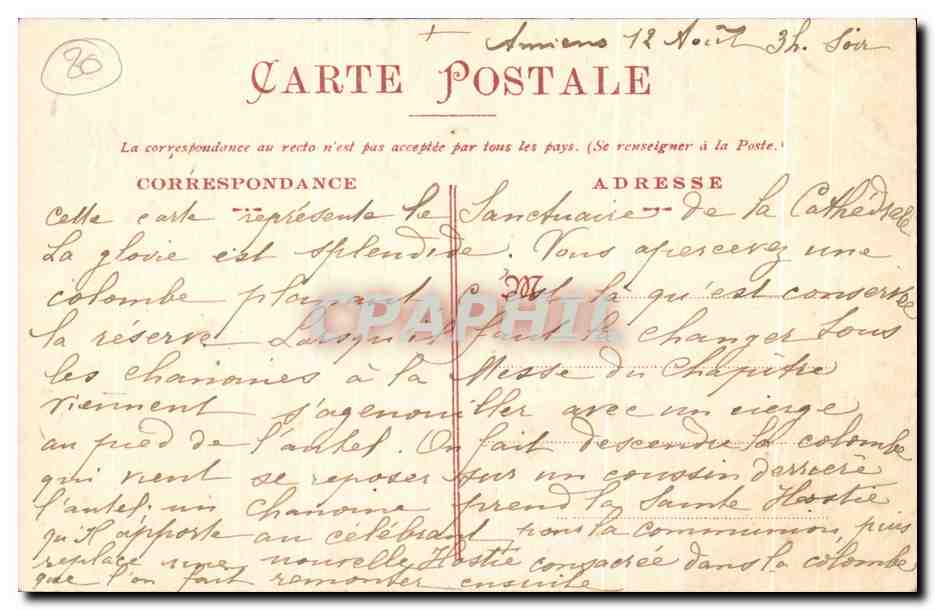 20
+ Amiens 12 Août 3h. Soir
CARTE POSTALE
La correspondance au recto n'est pas acceptée par tous les pays. (Se renseigner à la Poste.)
CORRESPONDANCE
ADRESSE
M
CPAPHIL
cette carte représente le Sanctuaire de la Cathédrale
La gloire est splendide. Vous apercevez une
colombe planant c'est là qu'est conservée
la réserve. Lorsqu'il faut la changer tous
les chanoines à la Messe du Chapitre
viennent s'agenouiller avec un cierge
au pied de l'autel. On fait descendre la colombe
qui vient se reposer sur un coussin derrière
l'autel; un chanoine prend la Sainte Hostie
qu'il apporte au célébrant pour la communion, puis
replace une nouvelle Hostie consacrée dans la colombe
que l'on fait remonter ensuite